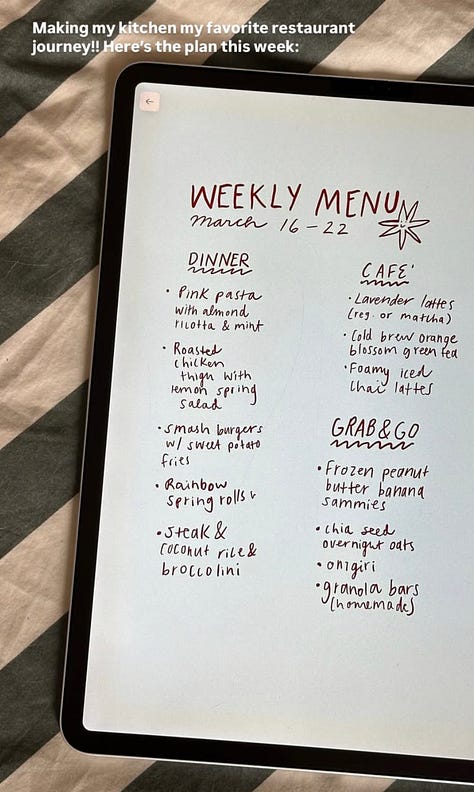 Making my kitchen my favorite restaurant
journey!! Here's the plan this week:
WEEKLY MENU
March 16-22
DINNER
• Pink pasta
with almond
ricotta & mint
• Roasted
chicken
thigh with
lemon spring
salad
• Smash burgers
w/ sweet potato
fries
• Rainbow
spring rolls
• Steak &
coconut rice &
broccolini
CAFE'
• Lavender lattes
(reg. or matcha)
• Cold brew orange
blossom green tea
• Foamy iced
chai lattes
GRAB & GO
• Frozen peanut
butter banana
sammies
• chia seed
overnight oats
• onigiri
• granola bars
(homemade)